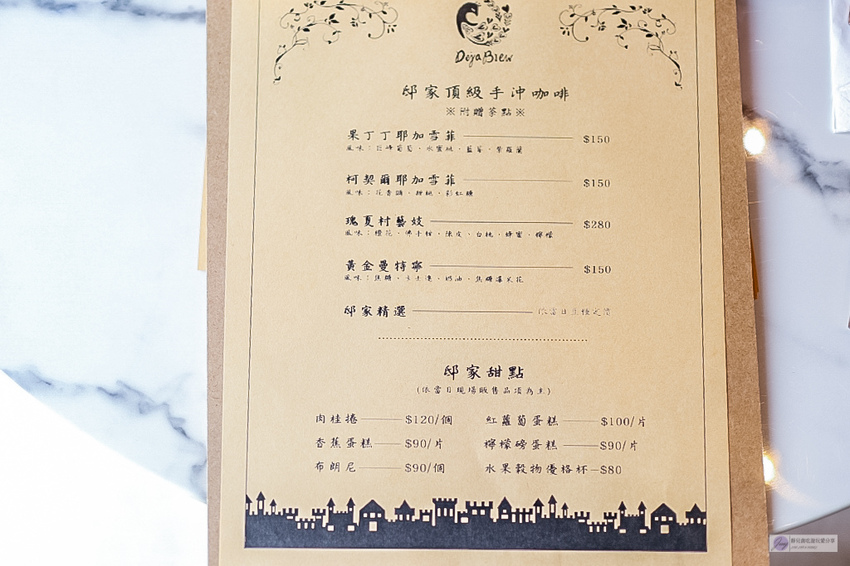 Deja Brew
邸家頂級手沖咖啡
※附贈茶點※
果丁丁耶加雪菲 $150
風味:巨峰葡萄、水蜜桃、藍莓、紫羅蘭
柯契爾耶加雪菲 $150
風味:花香調、甜桃、彩虹糖
瑰夏村藝妓 $280
風味:橙花、佛手柑、陳皮、白桃、蜂蜜、檸檬
黃金曼特寧 $150
風味:焦糖、奶油、焦糖爆米花
邸家精選
邸家甜點
(依當日現場販售品項為主)
肉桂捲 $120/個 紅蘿蔔蛋糕 $100/片
香蕉蛋糕 $90/片 檸檬磅蛋糕 $90/片
布朗尼 $90/個 水果穀物優格杯 $80